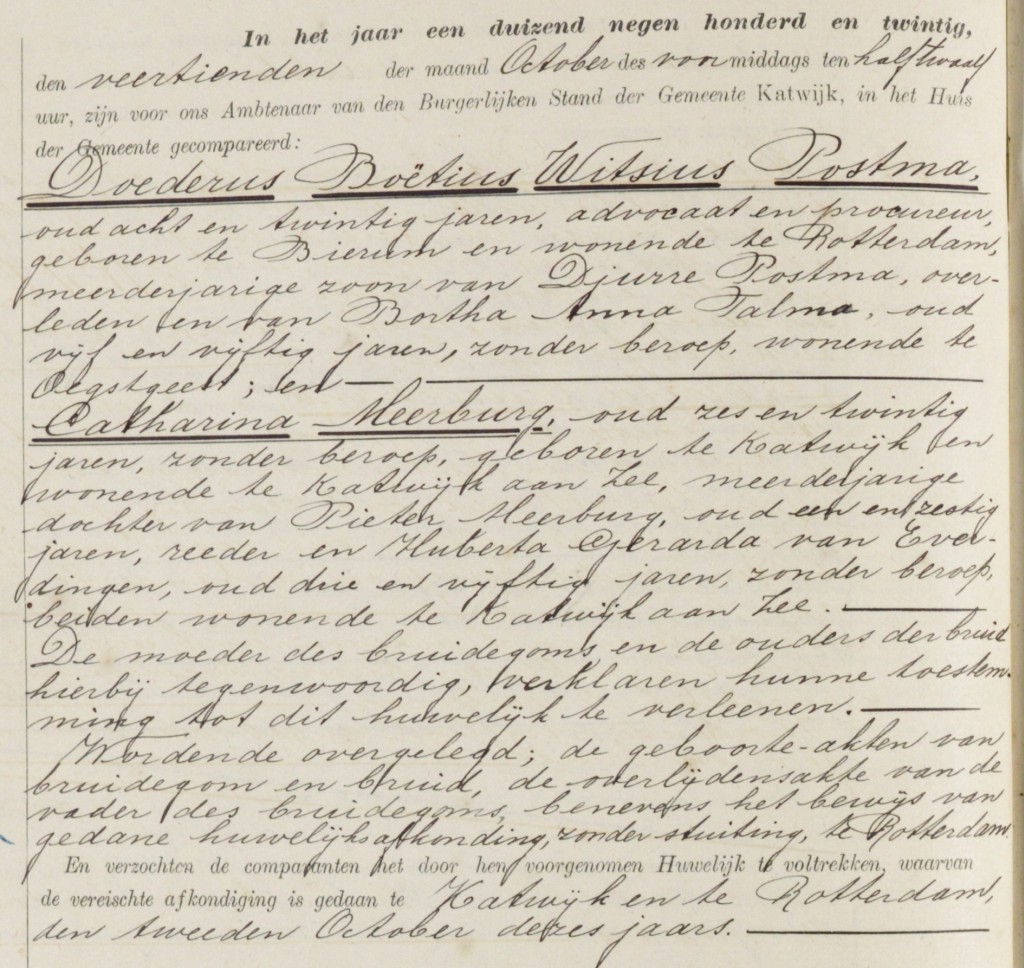 In het jaar een duizend negen honderd en twintig,
den veertienden der maand October des voormiddags ten half twaalf
uur, zijn voor ons Ambtenaar van den Burgerlijken Stand der Gemeente Katwijk, in het Huis
der Gemeente gecompareerd:
Doederus Boëtius Witsius Postma,
oud acht en twintig jaren, advocaat en procureur,
geboren te Bierum en wonende te Rotterdam,
meerderjarige zoon van Djurre Postma, over-
leden en van Bertha Anna Talma, oud
vijf en vijftig jaren, zonder beroep, wonende te
Oegstgeest; en
Catharina Meerburg, oud zes en twintig
jaren, zonder beroep, geboren te Katwijk en
wonende te Katwijk aan Zee, meerderjarige
dochter van Pieter Meerburg, oud een en zestig
jaren, reeder en Huberta Gerarda van Ever-
dingen, oud drie en vijftig jaren, zonder beroep,
beiden wonende te Katwijk aan Zee.
De moeder des bruidegoms en de ouders der bruid
hierbij tegenwoordig, verklaren hunne toestem-
ming tot dit huwelijk te verleenen.
Wordende overgelegd; de geboorte-akten van
bruidegom en bruid, de overlijdensakte van de
vader des bruidegoms, benevens het bewijs van
gedane huwelijksafkonding, zonder stuiting, te Rotterdam.
En verzochten de comparanten het door hen voorgenomen Huwelijk te voltrekken, waarvan
de vereischte afkondiging is gedaan te Katwijk en te Rotterdam,
den tweeden October dezes jaars.